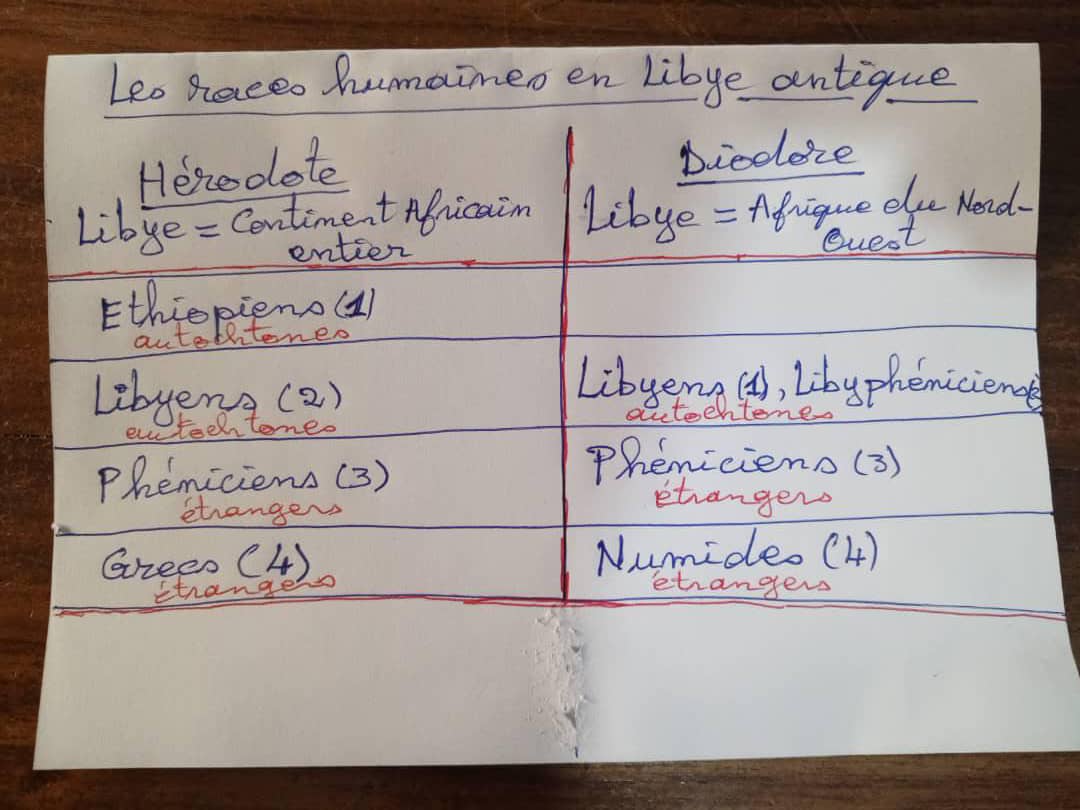 Les races humaines en Libye antique
Hérodote
Libye = Continent Africain
entier
Diodore
Libye = Afrique du Nord-
Ouest
Ethiopiens (1)
autochtones
Libyens (2)
autochtones
Libyens (1), Libyphéniciens(2)
autochtones
Phéniciens (3)
étrangers
Phéniciens (3)
étrangers
Grecs (4)
étrangers
Numides (4)
étrangers